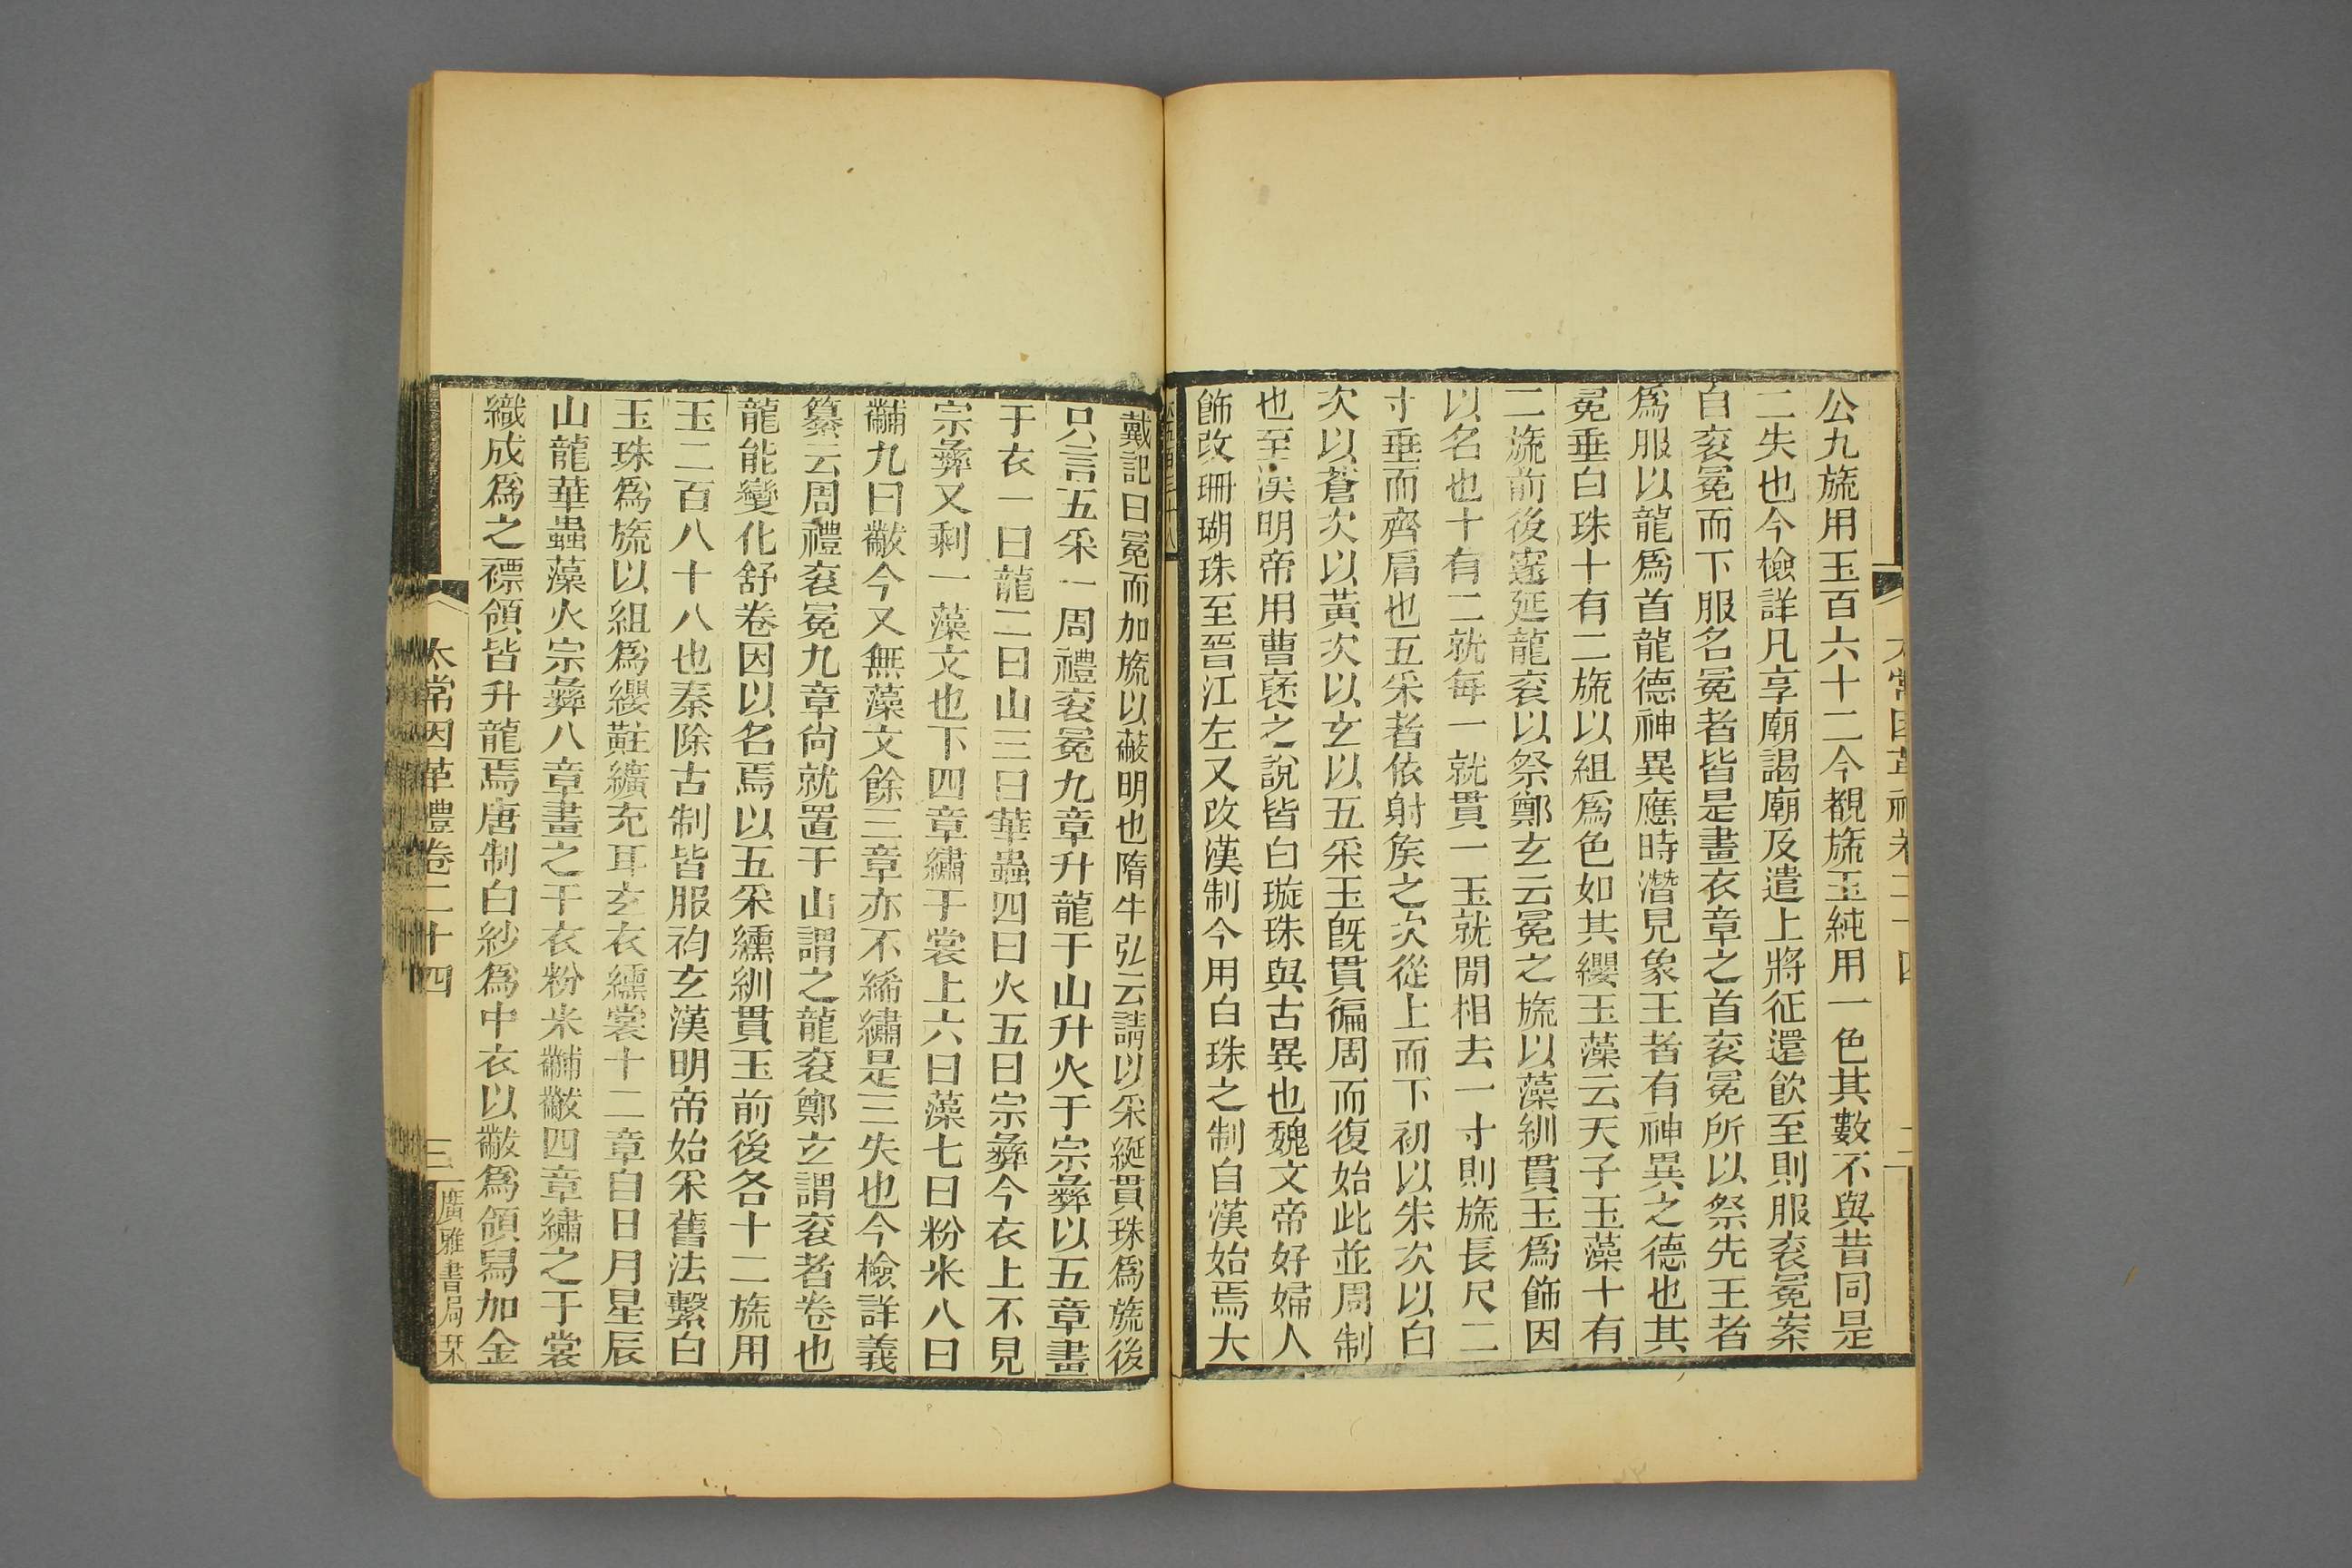 公九旒用玉百六十二今覩旒玉純用一色其數不與昔同是
二失也今檢詳凡享廟謁廟及遣上將征還飲至則服衮冕案
自衮冕而下服名冕者皆是畫衣章之首衮冕所以祭先王者
爲服以龍爲首龍德神異應時潛見象王者有神異之德也其
冕垂白珠十有二旒以組爲色如其纓玉藻云天子玉藻十有
二旒前後邃延龍衮以祭鄭玄云冕之旒以藻紃貫玉爲飾因
以名也十有二就每一就貫一玉就閒相去一寸則旒長尺二
寸垂而齊肩也五采者依射矦之次從上而下初以朱次以白
次以蒼次以黃次以玄以五采玉旣貫徧周而復始此並周制
也至漢明帝用曹褒之說皆白璇珠與古異也魏文帝好婦人
飾改珊瑚珠至晉江左又改漢制今用白珠之制自漢始焉大
戴記曰冕而加旒以蔽明也隋牛弘云請以采綖貫珠爲旒後
只言五采一周禮衮冕九章升龍于山升火于宗彝以五章畫
于衣一曰龍二曰山三曰華蟲四曰火五曰宗彝今衣上不見
宗彝又剩一藻文也下四章繡于裳上六曰藻七曰粉米八曰
黼九曰黻今又無藻文餘三章亦不絺繡是三失也今檢詳義
纂云周禮衮冕九章尙就置于山謂之龍衮鄭玄謂衮者卷也
龍能變化舒卷因以名焉以五采纁紃貫玉前後各十二旒用
玉二百八十八也秦除古制皆服袀玄漢明帝始采舊法繫白
玉珠爲旒以組爲纓黈纊充耳玄衣纁裳十二章自日月星辰
山龍華蟲藻火宗彝八章畫之于衣粉米黼黻四章繡之于裳
織成爲之褾領皆升龍焉唐制白紗爲中衣以黻爲領舄加金
太常因革禮卷二十四
三
廣雅書局栞